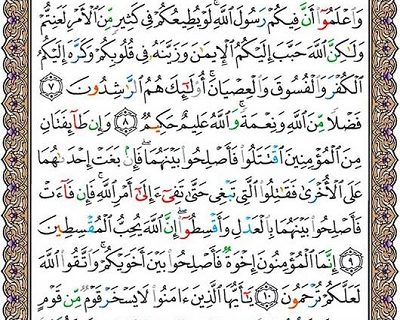 وَٱعۡلَمُوٓاْ أَنَّ فِيكُمۡ رَسُولَ ٱللَّهِۚ لَوۡ يُطِيعُكُمۡ فِي كَثِيرٖ مِّنَ ٱلۡأَمۡرِ لَعَنِتُّمۡ
وَلَٰكِنَّ ٱللَّهَ حَبَّبَ إِلَيۡكُمُ ٱلۡإِيمَٰنَ وَزَيَّنَهُۥ فِي قُلُوبِكُمۡ وَكَرَّهَ إِلَيۡكُمُ
ٱلۡكُفۡرَ وَٱلۡفُسُوقَ وَٱلۡعِصۡيَانَۚ أُوْلَٰٓئِكَ هُمُ ٱلرَّٰشِدُونَ ٧
فَضۡلٗا مِّنَ ٱللَّهِ وَنِعۡمَةٗۚ وَٱللَّهُ عَلِيمٌ حَكِيمٞ ٨ وَإِن طَآئِفَتَانِ
مِنَ ٱلۡمُؤۡمِنِينَ ٱقۡتَتَلُواْ فَأَصۡلِحُواْ بَيۡنَهُمَاۖ فَإِنۢ بَغَتۡ إِحۡدَىٰهُمَا
عَلَى ٱلۡأُخۡرَىٰ فَقَٰتِلُواْ ٱلَّتِي تَبۡغِي حَتَّىٰ تَفِيٓءَ إِلَىٰٓ أَمۡرِ ٱللَّهِۚ فَإِن فَآءَتۡ
فَأَصۡلِحُواْ بَيۡنَهُمَا بِٱلۡعَدۡلِ وَأَقۡسِطُوٓاْۖ إِنَّ ٱللَّهَ يُحِبُّ ٱلۡمُقۡسِطِينَ
٩ إِنَّمَا ٱلۡمُؤۡمِنُونَ إِخۡوَةٞ فَأَصۡلِحُواْ بَيۡنَ أَخَوَيۡكُمۡۚ وَٱتَّقُواْ ٱللَّهَ
لَعَلَّكُمۡ تُرۡحَمُونَ ١٠ يَٰٓأَيُّهَا ٱلَّذِينَ ءَامَنُواْ لَا يَسۡخَرۡ قَوۡمٞ مِّن قَوۡمٍ